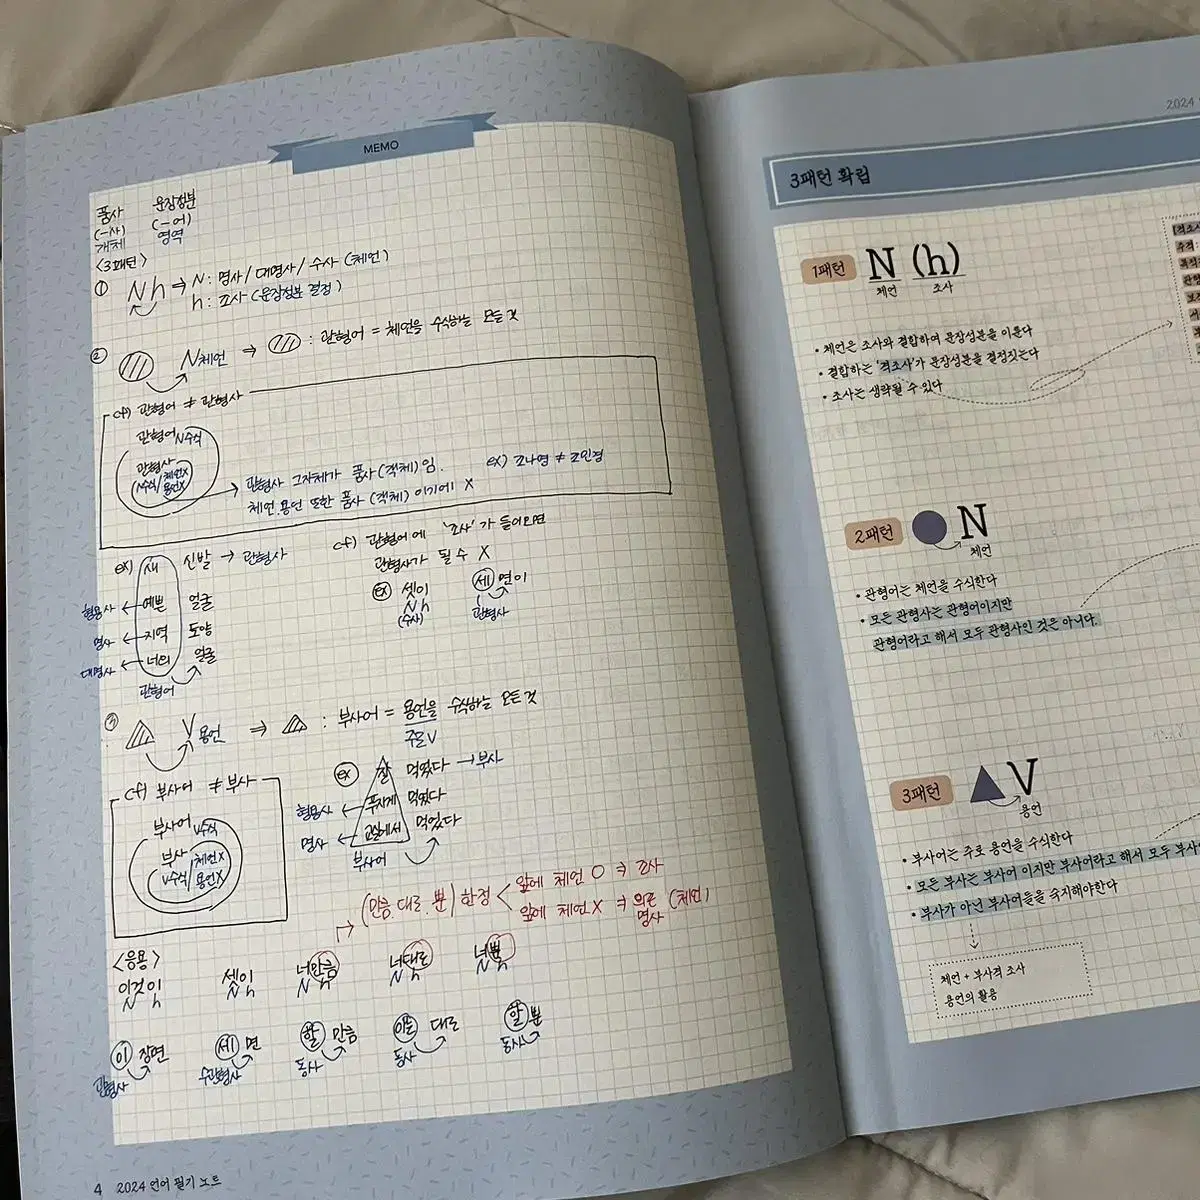 MEMO
품사 문장성분
(-사) (-어)
개체 영역
<3패턴>
① N h ⇒ N: 명사/대명사/수사 (체언)
h: 조사 (문장성분 결정)
② N체언 ⇒ : 관형어 = 체언을 수식하는 모든것
cf) 관형어 ≠ 관형사
관형어 N수식
관형사
N수식/체언X
용언X
관형사 그자체가 품사(객체)임.
체언.용언 또한 품사(객체)이기에 X
ex) 조나영 ≠ 조인경
ex) 새 신발 → 관형사
형용사 ← 예쁜 얼굴
명사 ← 지역 토양
대명사 ← 너의 얼굴
관형어
cf) 관형어에 '조사'가 들어오면
관형사가 될 수 X
ex 셋이 세 면이
N h
(수사) 관형사
③ V용언 ⇒ : 부사어 = 용언을 수식하는 모든것
주로 V
cf) 부사어 ≠ 부사
부사어 V수식
부사
V수식/체언X
용언X
ex 잘 먹었다 → 부사
형용사 ← 푸지게 먹었다
명사 ← 교실에서 먹었다
부사어
(만큼.대로.뿐) 한정 < 앞에 체언 O ⇒ 조사
앞에 체언 X ⇒ 의존명사 (체언)
<응용>
이것이 셋이 너만큼 너대로 너뿐
N h N h N h N h N h
이 장면 세 면 할 만큼 이 대로 할 뿐
관형사 수관형사 동사 동사 동사
4 2024 언어 필기 노트
2024
3패턴 확립
1패턴 N (h)
체언 조사
• 체언은 조사와 결합하여 문장성분을 이룬다
• 결합하는 '격조사'가 문장성분을 결정짓는다
• 조사는 생략될 수 있다
2패턴 N
체언
• 관형어는 체언을 수식한다
• 모든 관형사는 관형어이지만
관형어라고 해서 모두 관형사인 것은 아니다.
3패턴 V
용언
• 부사어는 주로 용언을 수식한다
• 모든 부사는 부사어 이지만 부사어라고 해서 모두 부사
• 부사가 아닌 부사어들을 숙지해야한다
체언 + 부사격 조사
용언의 활용